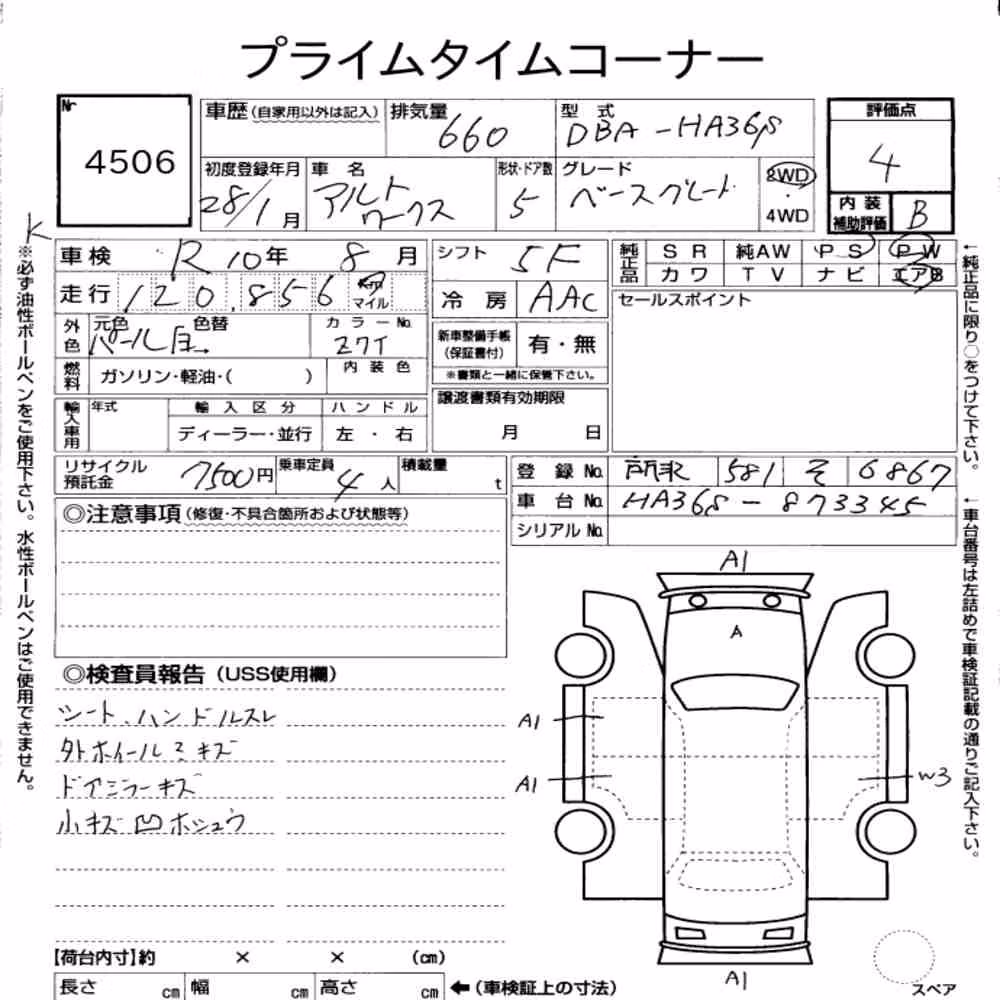 プライムタイムコーナー
Nr
4506
車歴(自家用以外は記入)
排気量
660
型式
DBA-HA36S
評価点
4
初度登録年月
28/1月
車名
アルトワークス
形状・ドア数
5
グレード
ベースグレード
2WD
・
4WD
内装
補助評価
B
K
車検
R10年8月
シフト
5F
純正品
SR 純AW PS PW
カワ TV ナビ エアB
走行
120,856
km
マイル
冷房
AAC
セールスポイント
外色
元色 色替
パール白
カラーNo.
Z7T
新車整備手帳
(保証書付)
有・無
※書類と一緒に保管下さい。
燃料
ガソリン・軽油・( )
内装色
譲渡書類有効期限
月 日
輸入車用
年式
輸入区分
ハンドル
ディーラー・並行
左・右
リサイクル
預託金
7500円
乗車定員
4人
積載量
t
登録No.
所沢 581 そ 6867
車台No.
HA36S-873345
シリアルNo.
◎注意事項(修復・不具合箇所および状態等)
◎検査員報告(USS使用欄)
シート、ハンドルスレ
外ホイールミキズ
ドアミラーキズ
小キズ凹ホシュウ
A1
A
A1
A1
W3
A1
スペア
【荷台内寸】約 × × (cm)
長さ cm 幅 cm 高さ cm ←(車検証上の寸法)
※必ず油性ボールペンをご使用下さい。水性ボールペンはご使用できません。
←純正品に限り○をつけて下さい。
←車台番号は左詰めで車検証記載の通りご記入下さい。